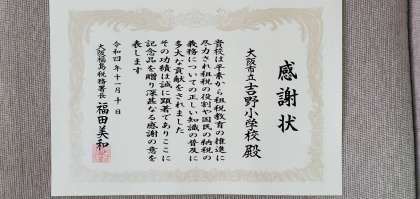 感謝状
大阪市立吉野小学校殿
貴校は平素から租税教育の推進に
尽力され租税の役割や国民の納税の
義務についての正しい知識の普及に
多大な貢献をされました
その功績は誠に顕著でありここに
記念品を贈り深甚なる感謝の意を
表します
令和四年十一月十日
大阪福島税務署長 福田美和